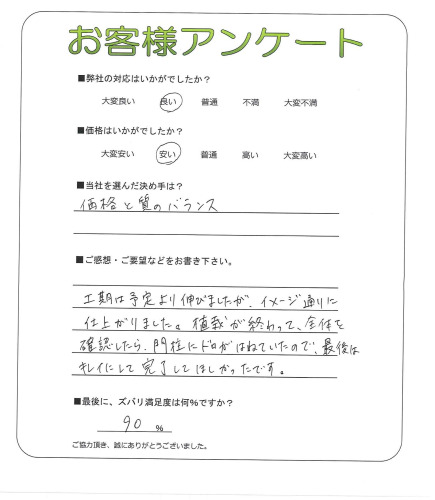 お客様アンケート
■弊社の対応はいかがでしたか？
大変良い 良い 普通 不満 大変不満
■価格はいかがでしたか？
大変安い 安い 普通 高い 大変高い
■当社を選んだ決め手は？
価格と質のバランス
■ご感想・ご要望などをお書き下さい。
工期は予定より伸びましたが、イメージ通りに
仕上がりました。植栽が終わって、全体を
確認したら、門柱にドロがはねていたので、最後は
キレイにして完了してほしかったです。
■最後に、ズバリ満足度は何%ですか？
90 %
ご協力頂き、誠にありがとうございました。